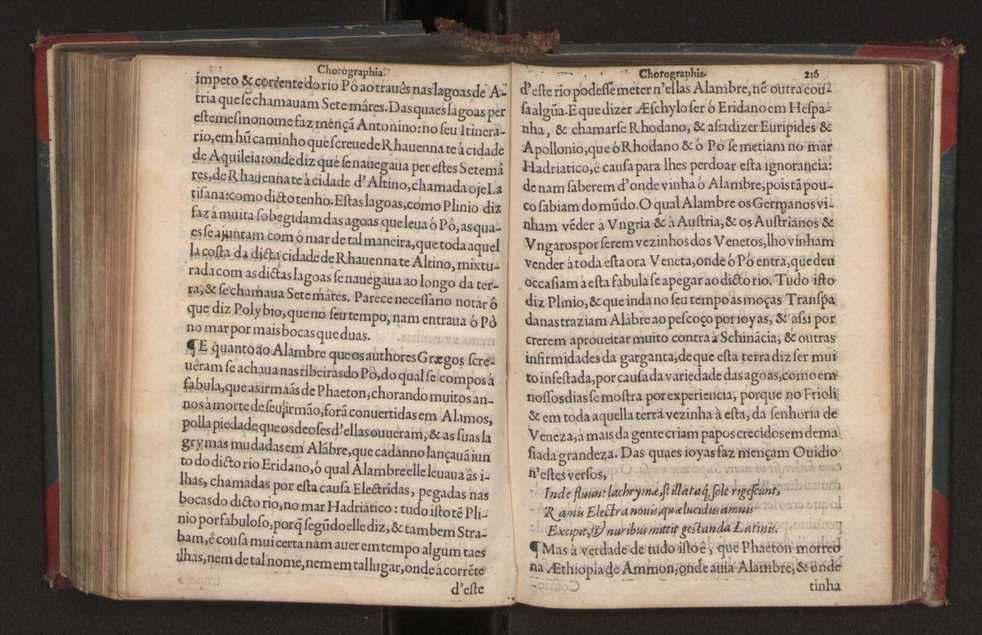 Chorographia.
impeto & corrente do rio Pô ao trauès nas lagoas de A-
tria que se chamauam Sete mâres. Das quaes lagoas per
este mesmo nome faz mençã Antonino: no seu Itinera-
rio, em hũ caminho que screue de Rhauenna te à cidade
de Aquileia: onde diz que se nauegaua per estes Sete mâ
res, de Rhauenna te à cidade d'Altino, chamada oje La
tisana: como dicto tenho. Estas lagoas, como Plinio diz
faz à muita sobegidam das agoas que leua ó Pô, as qua-
es se ajuntam com ó mar de tal maneira, que toda aquel
la costa da dicta cidade de Rhauenna te Altino, mixtu-
rada com as dictas lagoas se nauegaua ao longo da ter-
ra, & se chamaua Sete mâres. Parece necessario notar ó
que diz Polybio, que no seu tempo, nam entraua ó Pô
no mar por mais bocas que duas.
¶ E quanto ao Alambre que os authores Grægos scre-
uêram se achaua nas ribeiras do Pô, do qual se compos à
fabula, que as irmaãs de Phaeton, chorando muitos an-
nos à morte de seu irmão, forã conuertidas em Alamos,
polla piedade que os deoses d'ellas ouueram, & as suas la
grymas mudadas em Alãbre, que cadanno lançauã iun
to do dicto rio Eridano, ó qual Alambre elle leuaua âs i-
lhas, chamadas por esta causa Electridas, pegadas nas
bocas do dicto rio, no mar Hadriatico: tudo isto tẽ Pli-
nio por fabuloso, porq̃ segũdo elle diz, & tambem Stra-
bam, é cousa mui certa nam auer em tempo algum taes
ilhas, nem de tal nome, nem em tal lugar, onde à corrẽte
d'este
Chorographia.
216
d'este rio podesse meter n'ellas Alambre, nẽ outra cou-
sa algũa. E que dizer Æschylo ser ó Eridano em Hespa-
nha, & chamarse Rhodano, & assi dizer Euripides &
Apollonio, que ó Rhodano & ó Pô se metiam no mar
Hadriatico, é causa para lhes perdoar esta ignorancia:
de nam saberem d'onde vinha ó Alambre, pois tã pou-
co sabiam do mũdo. O qual Alambre os Germanos vi-
nham vẽder à Vngria & à Austria, & os Austrianos &
Vngaros por serem vezinhos dos Venetos, lho vinham
vender à toda esta ora Veneta, onde ó Pô entra, que deu
occasiam à esta fabula se apegar ao dicto rio. Tudo isto
diz Plinio, & que inda no seu tempo às moças Transpa
danas traziam Alãbre ao pescoço por ioyas, & assi por
crerem aproueitar muito contra à Schinãcia, & outras
infirmidades da garganta, de que esta terra diz ser mui
to infestada, por causa da variedade das agoas, como em
nossos dias se mostra por experiencia, porque no Frioli
& em toda aquella terra vezinha à esta, da senhoria de
Veneza, à mais da gente criam papos crecidos em dema
siada grandeza. Das quaes ioyas faz mençam Ouidio
n'estes versos,
Inde fluunt lachrymæ, stillataq́; sole rigescunt,
Ramis Electra nouis, quæ lucidus amnis
Excipit, & nuribus mittit gestanda Latinis.
¶ Mas à verdade de tudo isto é, que Phaeton morreo
na Æthiopia de Ammon, onde auia Alambre, & onde
tinha